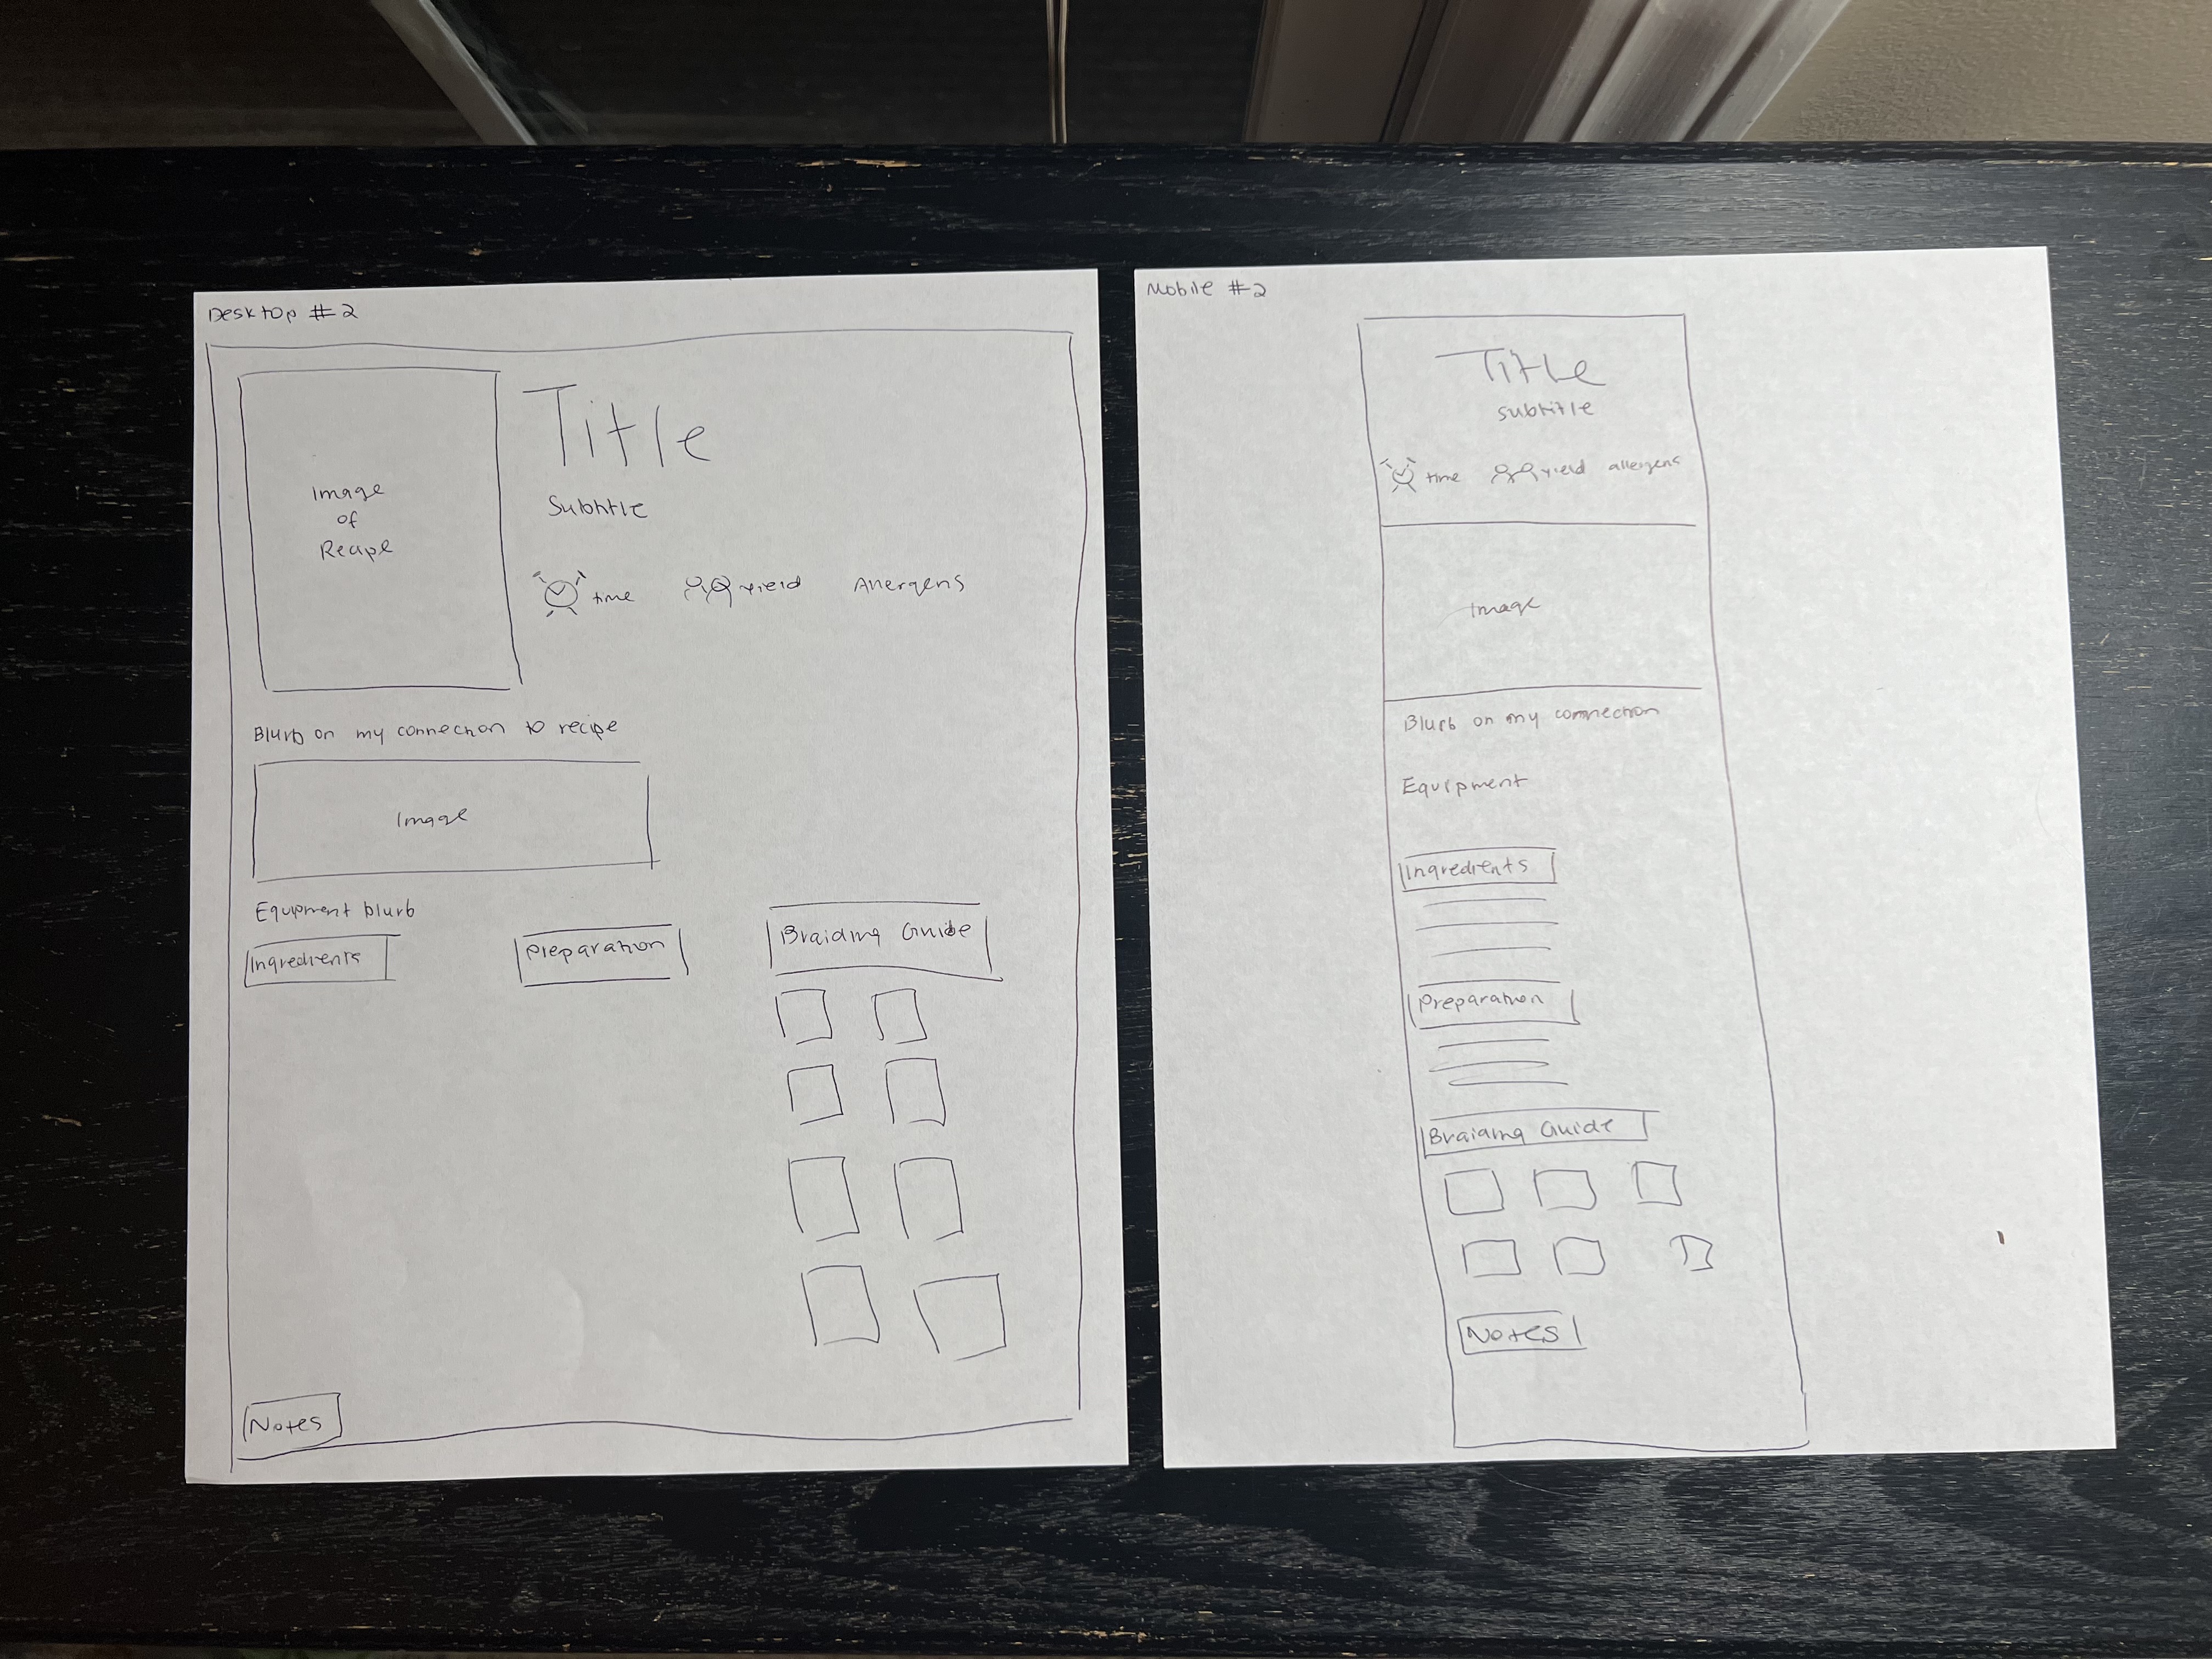 Desktop #2
Image
of
Recipe
Title
Subtitle
time yield Allergens
Blurb on my connection to recipe
Image
Equipment blurb
Ingredients
Preparation
Braiding Guide
Notes
Mobile #2
Title
subtitle
time yield allergens
Image
Blurb on my connection
Equipment
Ingredients
Preparation
Braiding Guide
Notes